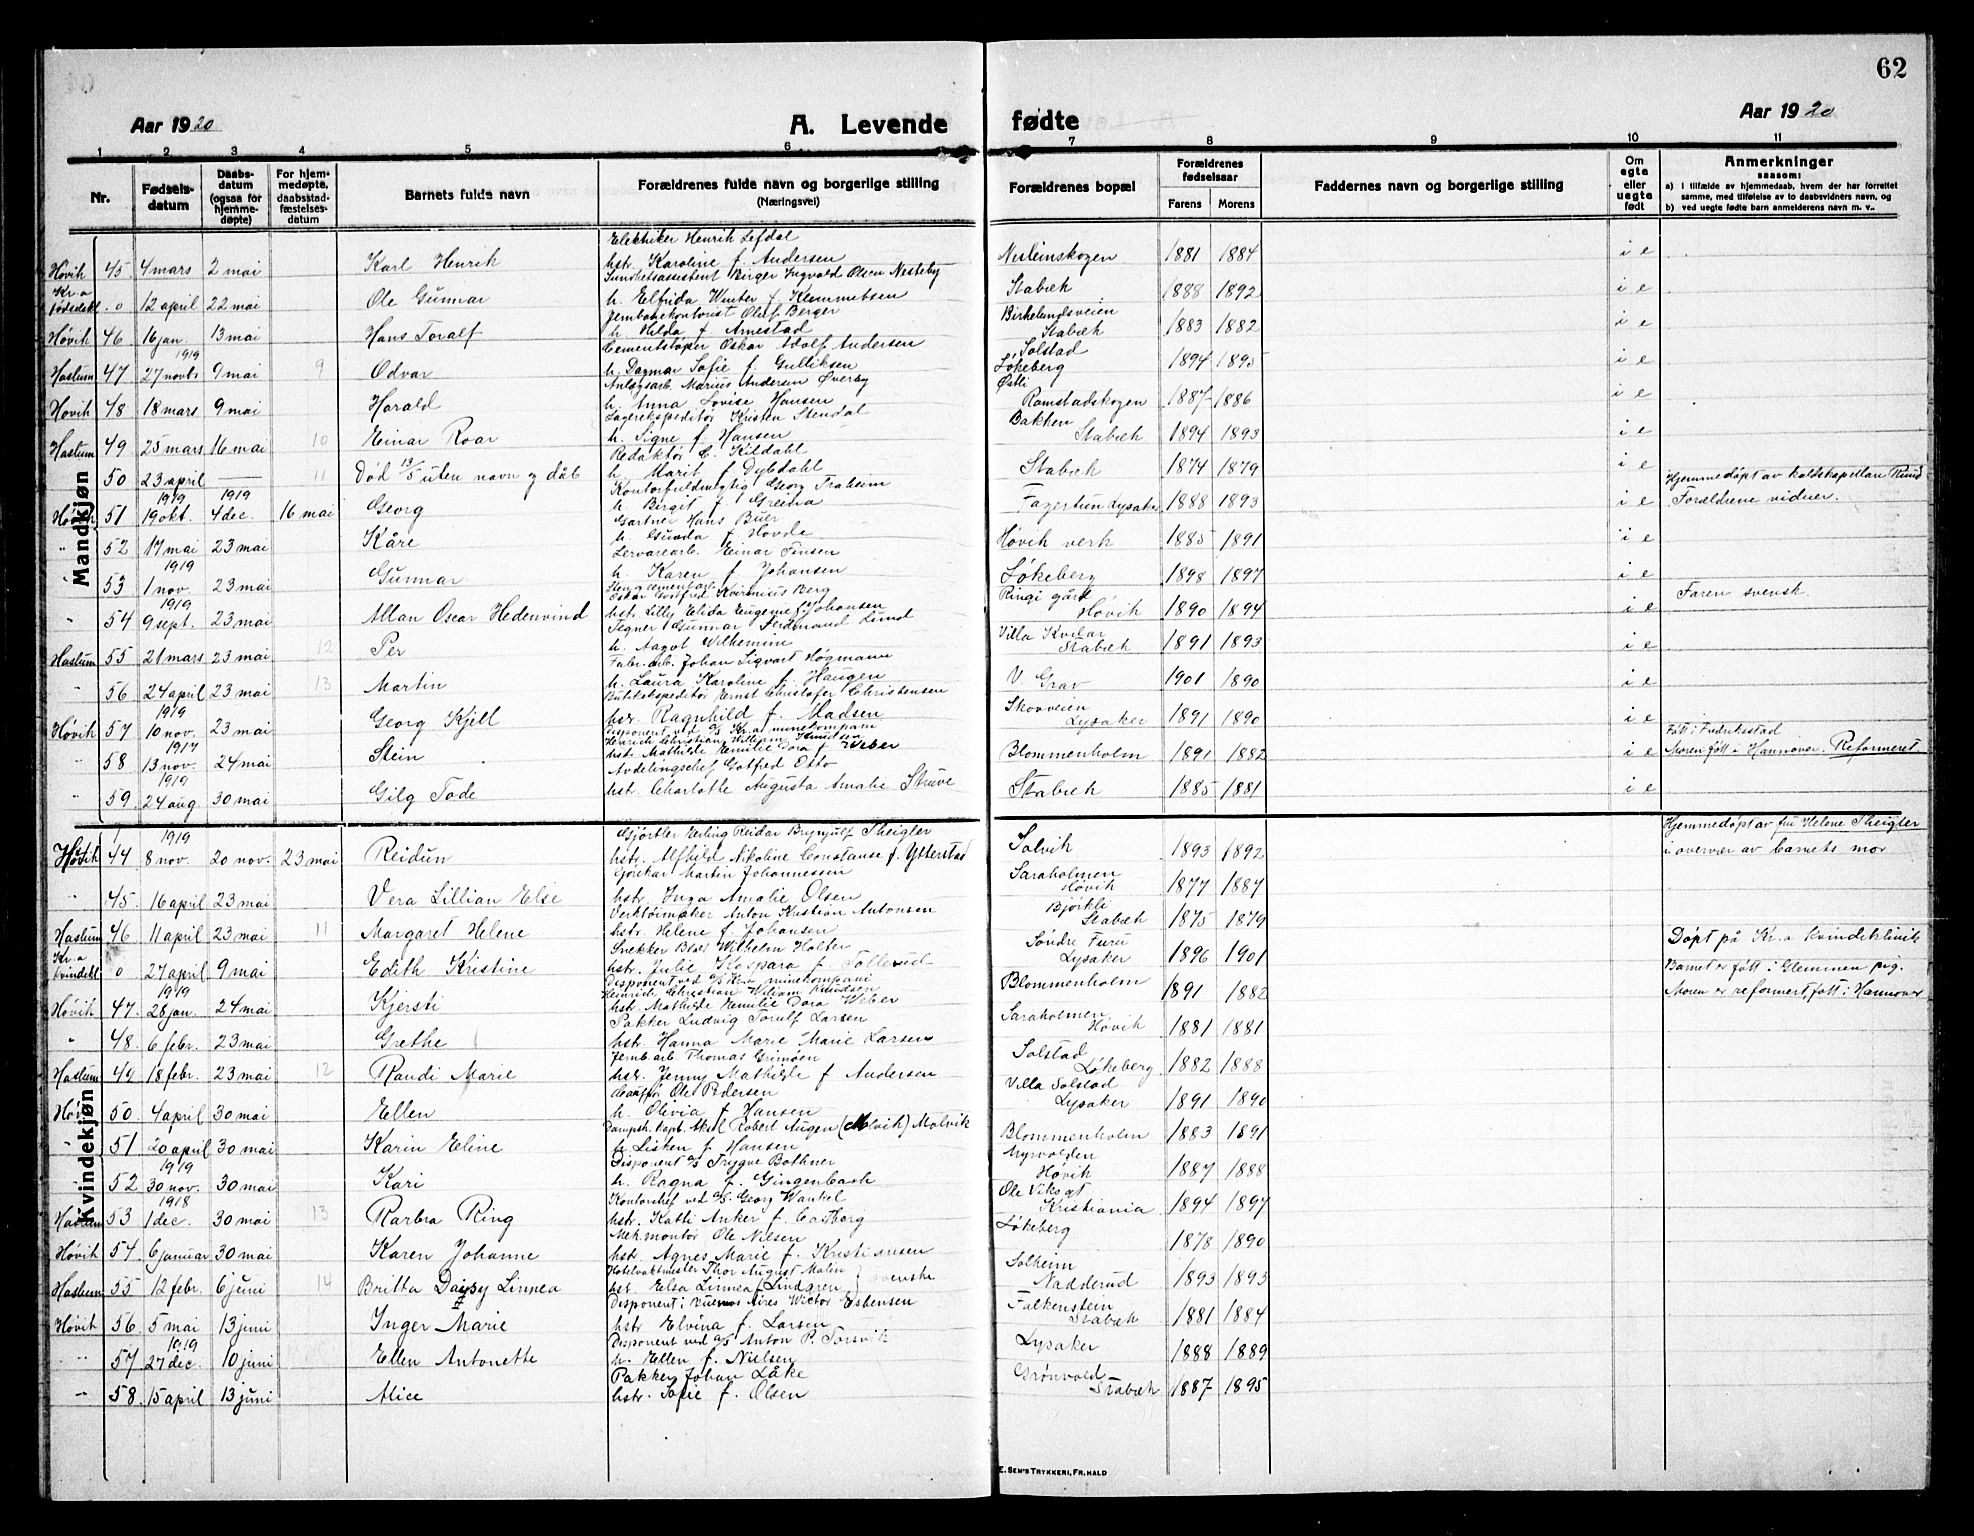 62
Aar 1920 A. Levende fødte Aar 1920
1 2 3 4 5 6 7 8 9 10 11
Nr. Fødsels-datum Daabs-datum (ogsaa for hjemme-døpte) For hjem-medøpte, daabsstad-fæstelses-datum Barnets fulde navn Forældrenes fulde navn og borgerlige stilling (Næringsvei) Forældrenes bopæl Forældrenes fødselsaar Farens Morens Faddernes navn og borgerlige stilling Om egte eller uegte født Anmerkninger saasom: a) i tilfælde av hjemmedaab, hvem der har forrettet samme, med tilføielse av to daabsvidners navn, og b) ved uegte fødte barn anmelderens navn m. v..
Mandkjøn
Elektriker Henrik Lefdal
Høvik 45 4 mars 2 mai Karl Henrik hstr. Karoline f. Andersen Nesleinskogen 1881 1884 i e
Sundhetsassistent Birger Ingvald Olsen Nesteby
Kr.a fødselskl. 0 12 april 22 mai Ole Gunnar h. Elfrida Winter f. Klemmetsen Stabæk 1888 1892 i e
Jernbanekontorist Oluf Berger
Høvik 46 16 jan. 13 mai Hans Toralf h. Hilda f. Arnestad Birkelundsveien Stabæk 1883 1882 i e
Cementstøper Oskar Adolf Andersen
Haslum 47 27 novbr 1919 9 mai 9 Odvar h. Dagmar Sofie f. Gulliksen Solstad Løkeberg 1894 1895 i e
Anlægsarb. Marius Andersen Øverby
Høvik 48 18 mars 9 mai Harald h. Anna Lovise Hansen Østli Ramstadskogen 1887 1886 i e
Lagerekspeditør Kristen Stendal
Haslum 49 25 mars 16 mai 10 Einar Roar h. Signe f. Hansen Bakken Stabæk 1894 1893 i e
Redaktør C. Kildahl
50 23 april — 11 Død 13/5 uten navn og dåb h. Marit f. Dybdahl Stabæk 1874 1879 i e
Kontorfuldmægtig Georg Traheim
Høvik 51 19 okt. 1919 4 dec. 1919 16 mai Georg h. Birgit f. Greina Fagertun Lysaker 1888 1893 i e Hjemmedøpt av kaldskapellan Rund Forældrene vidner.
Gartner Hans Buer
" 52 17 mai 23 mai Kåre h. Gunda f. Hovde Høvik verk 1885 1891 i e
Lervarearb. Einar Jensen
" 53 1 nov. 1919 23 mai Gunnar h. Karen f. Johansen Løkeberg 1898 1897 i e
Oskar Gotfred Kvirinius Berg
" 54 9 sept. 1919 23 mai Allan Oscar Hedenvind hstr. Lilly Elida Eugenie f. Johansen Ringi gård Høvik 1890 1894 i e Faren svensk.
Tegner Gunnar Ferdinand Lund
Haslum 55 21 mars 23 mai 12 Per h. Aagot Wilhelmine Villa Kvilar Stabæk 1891 1893 i e
Fabr.arb. Johan Sigvart Høgmann
" 56 24 april 23 mai 13 Martin h. Laura Karoline f. Haugen V. Grav 1901 1890 i e
Butikekspeditør Ernst Christofer Christensen
Høvik 57 10 nov. 1919 23 mai Georg Kjell hstr. Ragnhild f. Madsen Skovveien Lysaker 1891 1890 i e
Disponent ved a/s Kr.a minekompani Heinrich Christian William Knudsen
" 58 13 nov. 1917 24 mai Stein hstr. Mathilde Emilie Dora f. Weber Blommenholm 1891 1882 i e Født i Fredriksstad Moren født i Hannover. Reformeret.
Avdelingschef Gotfred Otto
" 59 24 aug 1919 30 mai Gilg Tode hstr. Charlotte Augusta Amalie Struve Stabæk 1885 1881 i e
Kvindekjøn
Gjørtler Erling Reidar Brynjulf Theigler
Høvik 44 8 nov. 1919 20 nov. 23 mai Reidun hstr. Alfhild Nikoline Constanse f. Ytterstad Solvik 1893 1892 Hjemmedøpt av fru Helene Theigler i overvær av barnets mor
Martin Johannessen
" 45 16 april 23 mai Vera Lillian Else hstr. Inga Amalie Olsen Saraholmen Høvik 1877 1887
Verktøimaker Anton Kristian Antonsen
Haslum 46 11 april 23 mai 11 Margaret Helene hstr. Helene f. Johansen Bjørkli Stabæk 1875 1879
Snekker Wilhelm Holter
Kr.a kvindekl. 0 27 april 9 mai Edith Kristine hstr. Julie Kaspara f. Tollevid Søndre Furu Lysaker 1896 1901 Døpt på Kr.a kvindeklinik
Disponent ved a/s Kr.a minekompani Heinrich Christian William Knudsen
Høvik 47 28 jan. 1919 24 mai Kjersti hstr. Mathilde Emilie Dora Weber Blommenholm 1891 1882 Barnet er født i Glemmen prg. Moren er reformert, født i Hannover
Pakker Ludvig Toralf Larsen
" 48 6 febr. 23 mai Grethe hstr. Hanna Marie Marie Larsen Saraholmen Høvik 1881 1881
Jernb.arb. Thomas Grimøen
Haslum 49 18 febr. 23 mai 12 Randi Marie hstr. Jenny Mathilde f. Andersen Solstad Løkeberg 1882 1888
Chauffør Ole Pedersen
Høvik 50 4 april 30 mai Ellen h. Olivia f. Hansen Villa Solstad Lysaker 1891 1890
Dampsk.kapt. Axel Robert Augen (Alvik) Malvik
" 51 20 april 30 mai Karin Eline h. Lisken f. Hansen Blommenholm 1883 1891
Disponent a/s Trygve Bothner
" 52 30 nov. 1919 30 mai Kari h. Ragna f. Gingenbach Myrvolden Høvik 1887 1888
Kontorchef ved a/s. Georg Wankel
Haslum 53 1 dec. 1918 30 mai 13 Barbra Ring hstr. Katti Anker f. Castberg Ole Viksgt Kristiania 1894 1897
Mek.montør Ole Nilsen
Høvik 54 6 januar 30 mai Karen Johanne hstr. Agnes Marie f. Kristiansen Løkeberg 1878 1890
Hotelvaktmester Thor August Malin
Haslum 55 12 febr. 6 juni 14 Britta Daisy Linnea hst. Elsa Linnea f. Lindgren } svenske Solheim Nadderud 1893 1893
Disponent i Buenos Aires Victor Esbensen
Høvik 56 5 mai 13 juni Inger Marie hstr. Elvina f. Larsen Falkenstein Stabæk 1881 1884
Disponent ved a/s Anton P. Torsvik
" 57 27 dec. 1919 10 juni Ellen Antonette h. Ellen f. Nielsen Lysaker 1888 1889
Pakker Johan Låke
" 58 15 april 13 juni Alice hstr. Sofie f. Olsen Grønvold Stabæk 1887 1895
E. SEM'S TRYKKERI, FR.HALD